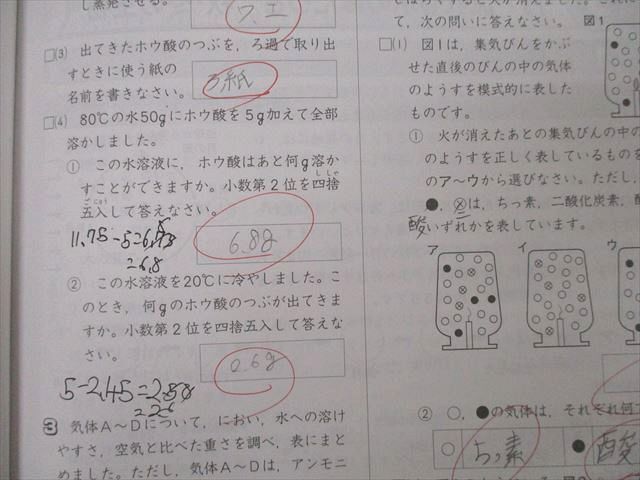 し蒸発させる。
ワ.エ
□(3) 出てきたホウ酸のつぶを，ろ過で取り出
すときに使う紙の
名前を書きなさい。
ろ紙
□(4) 80℃の水50gにホウ酸を5g加えて全部
溶かしました。
① この水溶液に，ホウ酸はあと何g溶か
すことができますか。小数第2位を四捨
五入して答えなさい。
ししゃ
ごにゅう
6.8g
=6.8
② この水溶液を20℃に冷やしました。こ
のとき，何gのホウ酸のつぶが出てきま
すか。小数第2位を四捨五入して答えな
さい。
2.6g
3 気体A～Dについて，におい，水への溶け
やすさ，空気と比べた重さを調べ，表にまと
めました。ただし，気体A～Dは，アンモニ
て，次の問いに答えなさい。 図1
□(1) 図1は，集気びんをかぶ
せた直後のびんの中の気体
のようすを模式的に表した
ものです。
① 火が消えたあとの集気びんの中の
のようすを正しく表しているものを
のア～ウから選びなさい。ただし，
●，⊗は，ちっ素，二酸化炭素，酸
いずれかを表しています。
ア
イ
ウ
② ○，●の気体は，それぞれ何で
○ ちっ素 ● 酸